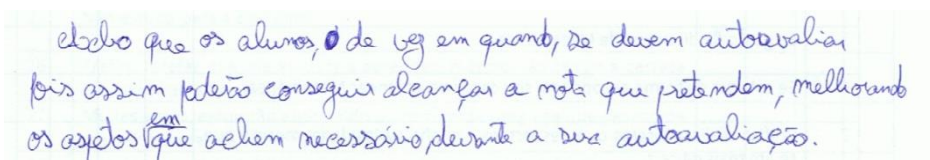 Acho que os alunos, de vez em quando, se devem autoavaliar
pois assim poderão conseguir alcançar a nota que pretendem, melhorando
os aspetos em que achem necessário, durante a sua autoavaliação.